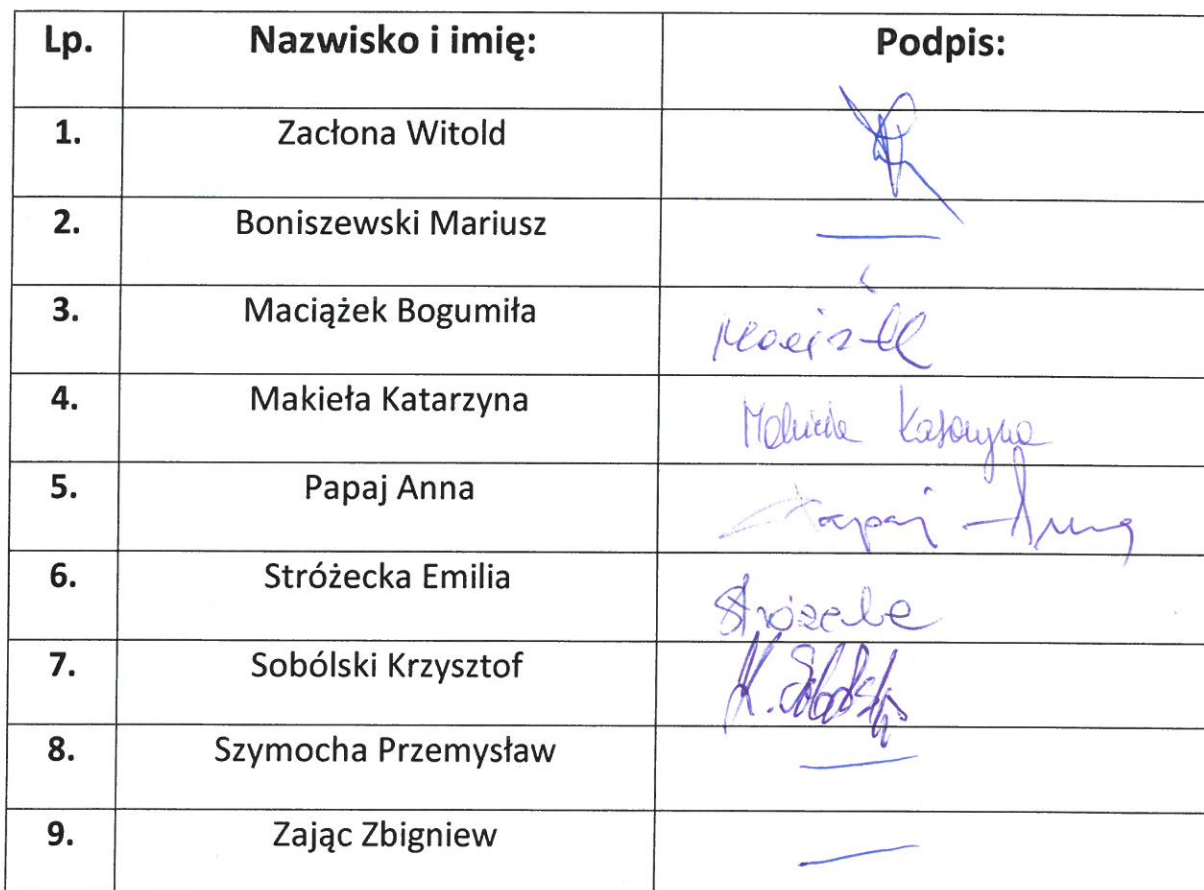 Lp. Nazwisko i imię: Podpis:
1. Zacłona Witold
2. Boniszewski Mariusz —
3. Maciążek Bogumiła
4. Makieła Katarzyna Makieła Katarzyna
5. Papaj Anna Papaj Anna
6. Stróżecka Emilia Stróżecka
7. Sobólski Krzysztof K. Sobólski
8. Szymocha Przemysław —
9. Zając Zbigniew —